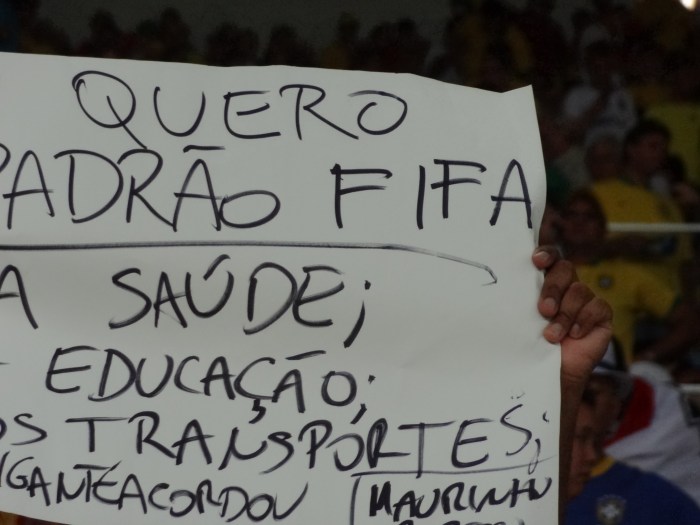 QUERO
PADRÃO FIFA
A SAÚDE;
EDUCAÇÃO;
OS TRANSPORTES;
IGANTEACORDOU